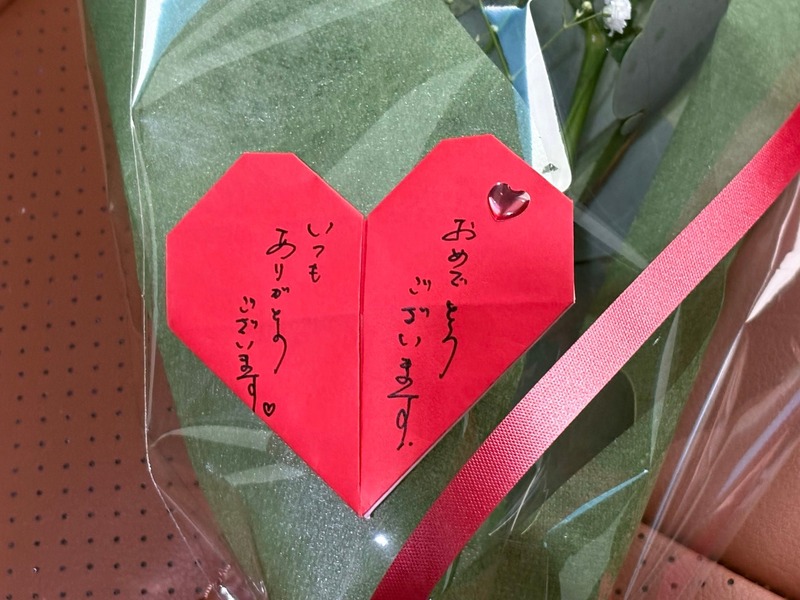 おめでとう
ございます。
いつも
ありがとう
ございます♡